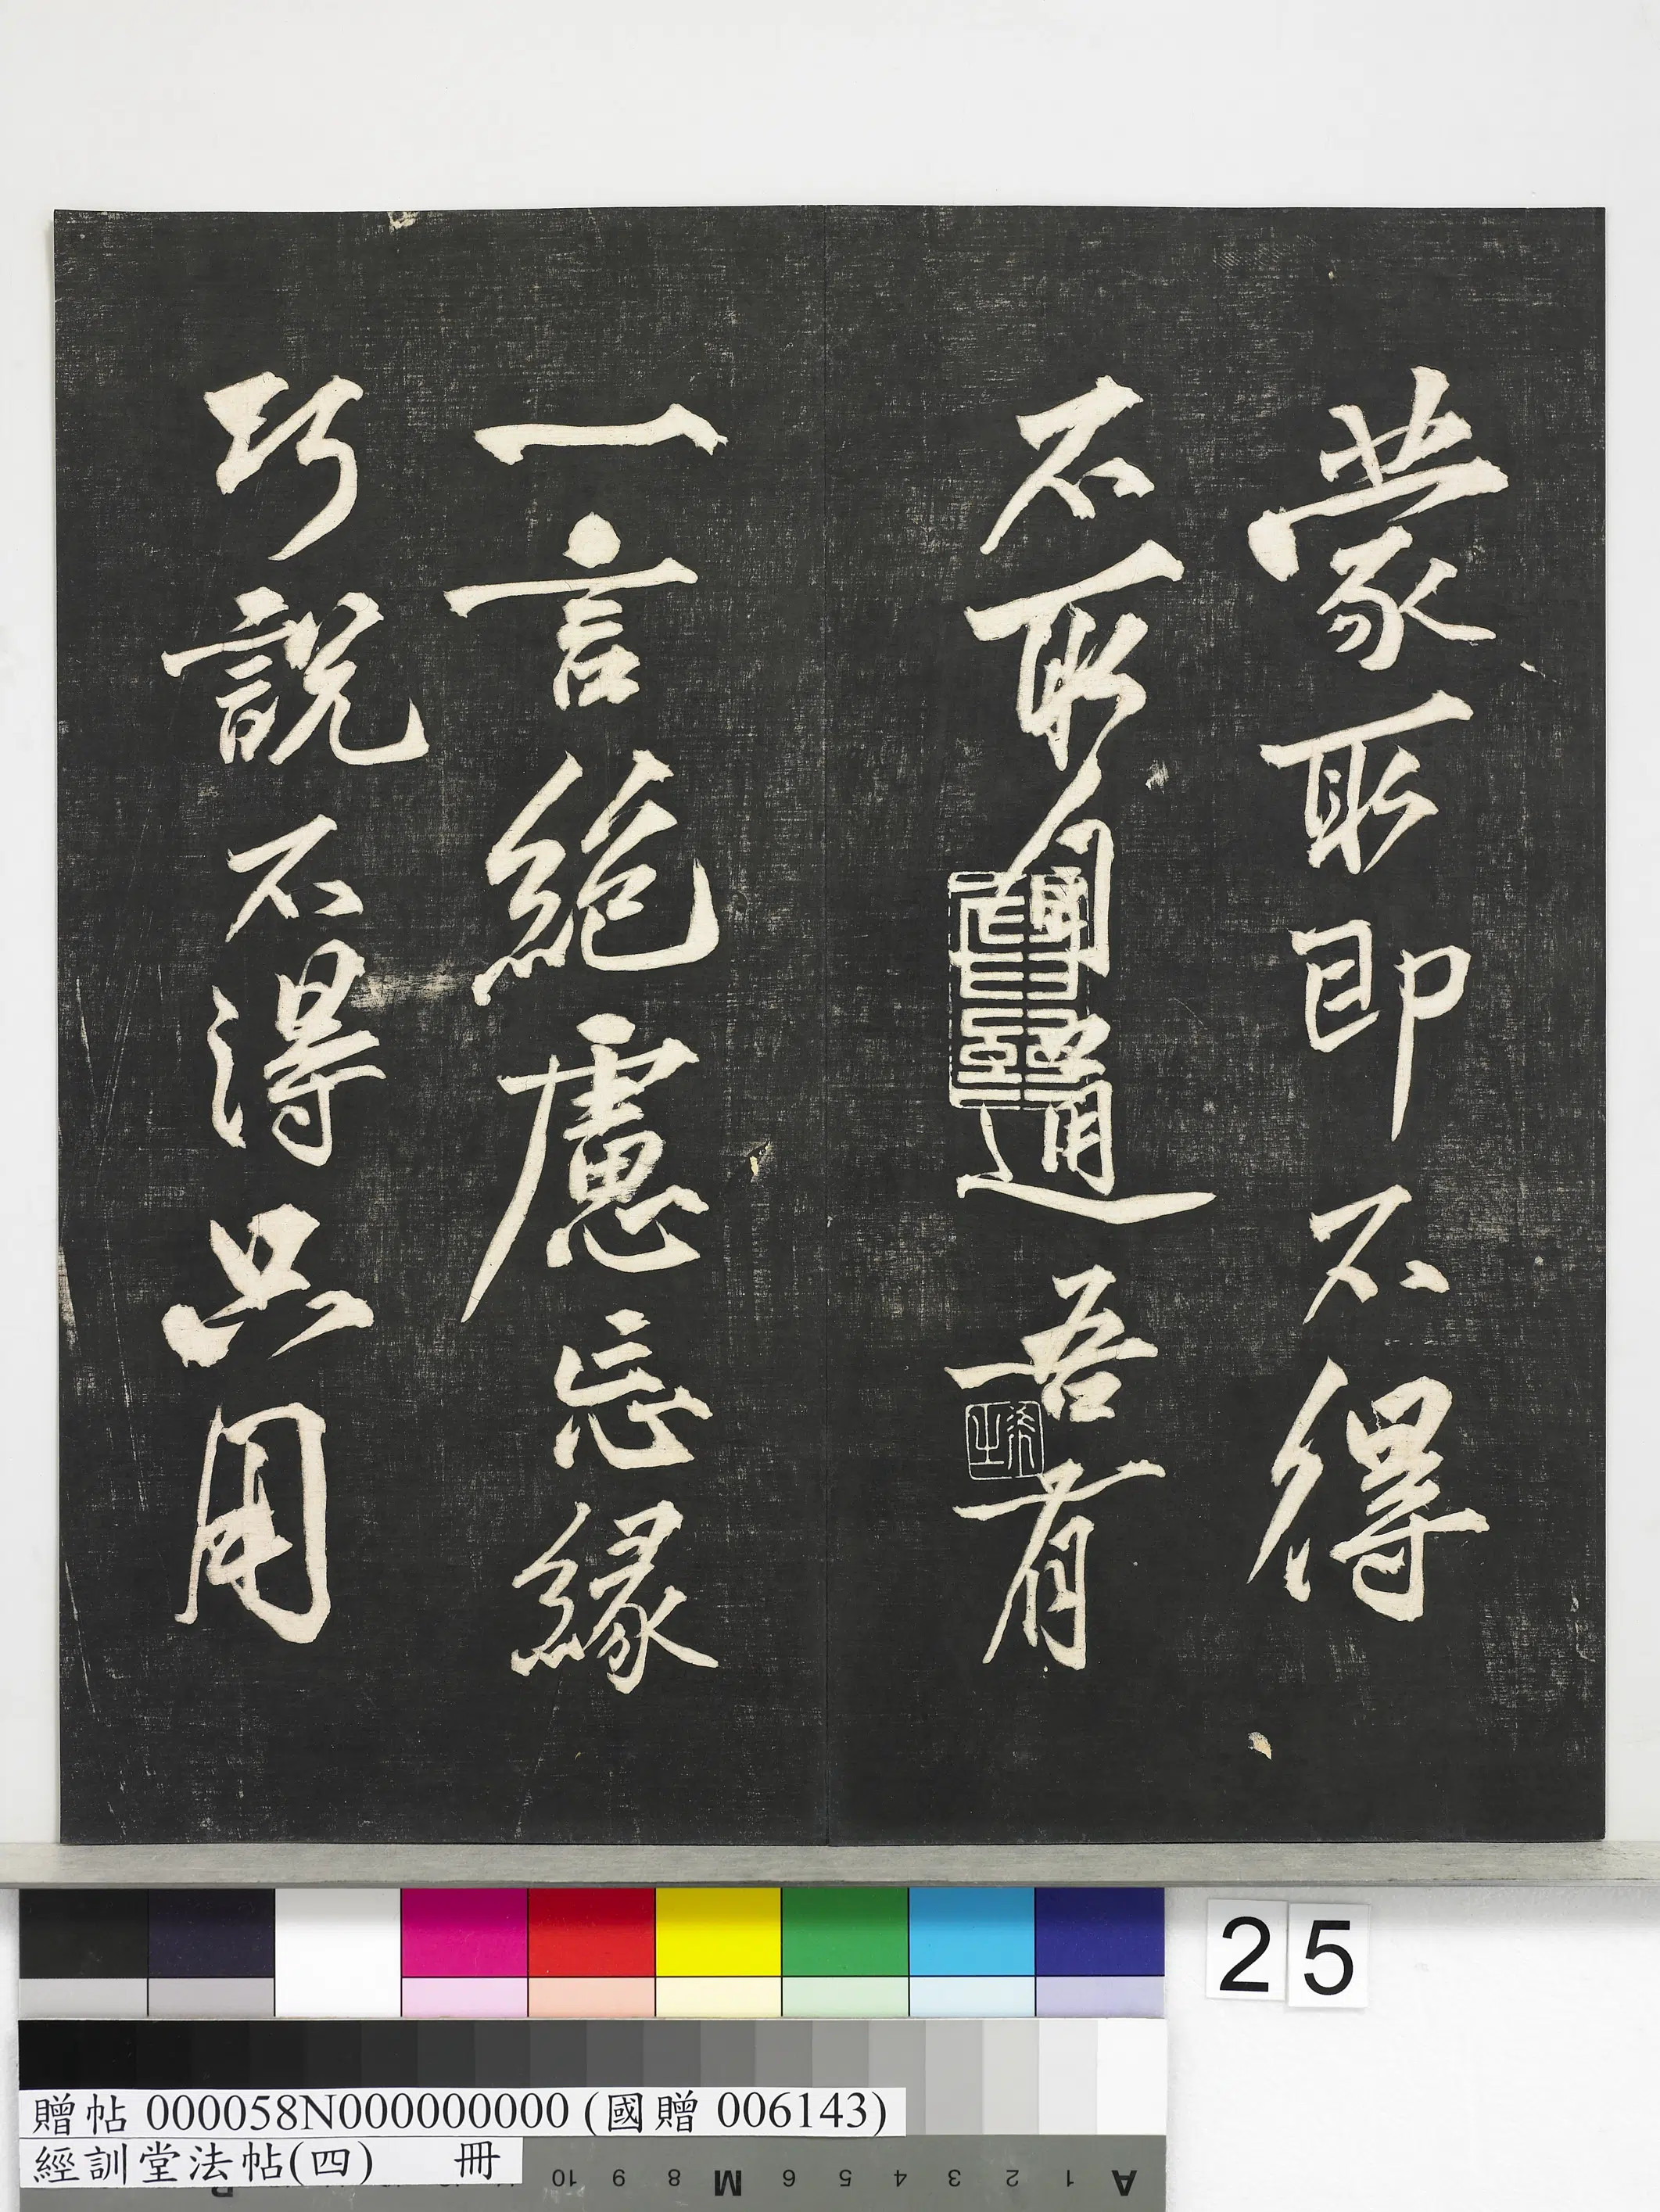 蒙取即不得
不取自通吾有
一言絕慮忘緣
巧說不得只用
25
贈帖 000058N000000000 (國贈 006143)
經訓堂法帖(四) 冊
A 1 2 3 4 5 6 M 8 9 10